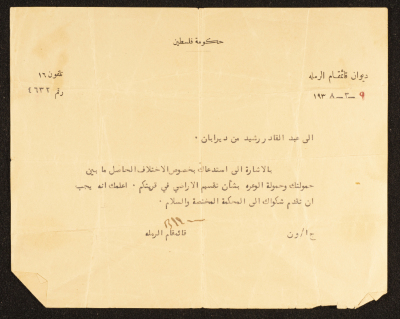 حكومة فلسطين
ديوان قائمقام الرمله
تلفون ١٦
٩-٣-١٩٣٨
رقم ٤٦٣٢
الى عبد القادر رشيد من ديرابان ٠
بالاشارة الى استدعاك بخصوص الاختلاف الحاصل ما بين
حمولتك وحمولة الوعره بشأن تقسيم الاراسي في قريتكم ٠ اعلمك انه يجب
ان تقدم شكواك الى المحكمة المختصة والسلام ٠
قائمقام الرمله
ج ا/ون